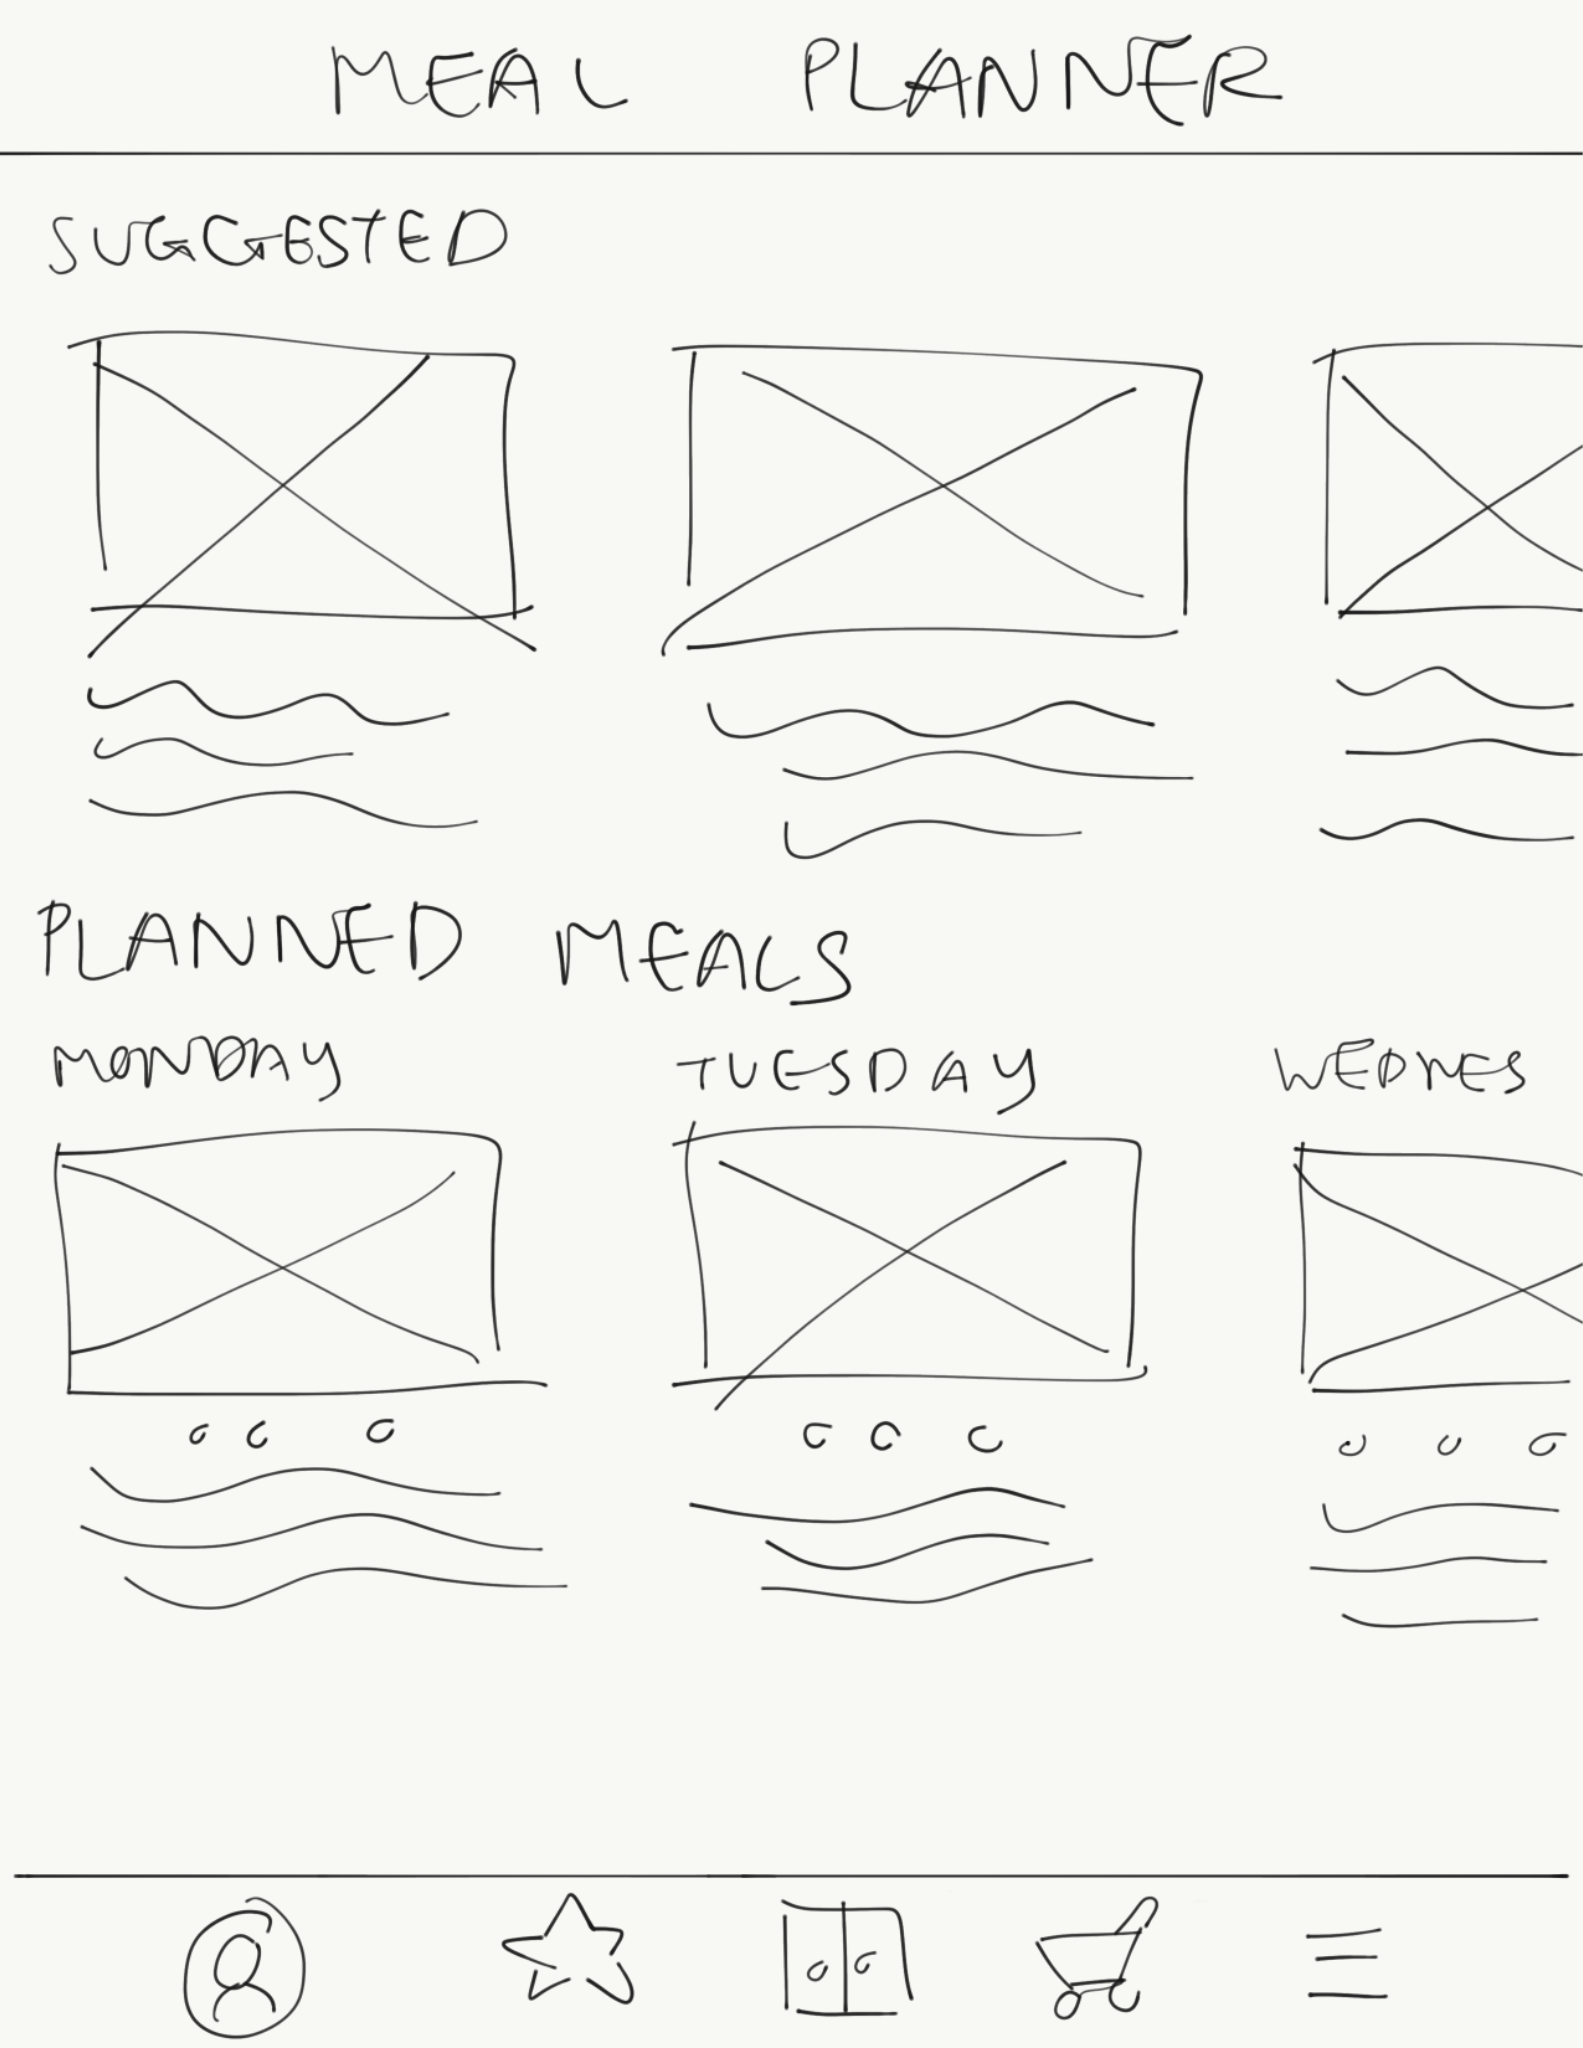 MEAL PLANNER
SUGGESTED
PLANNED MEALS
MONDAY TUESDAY WEDNES